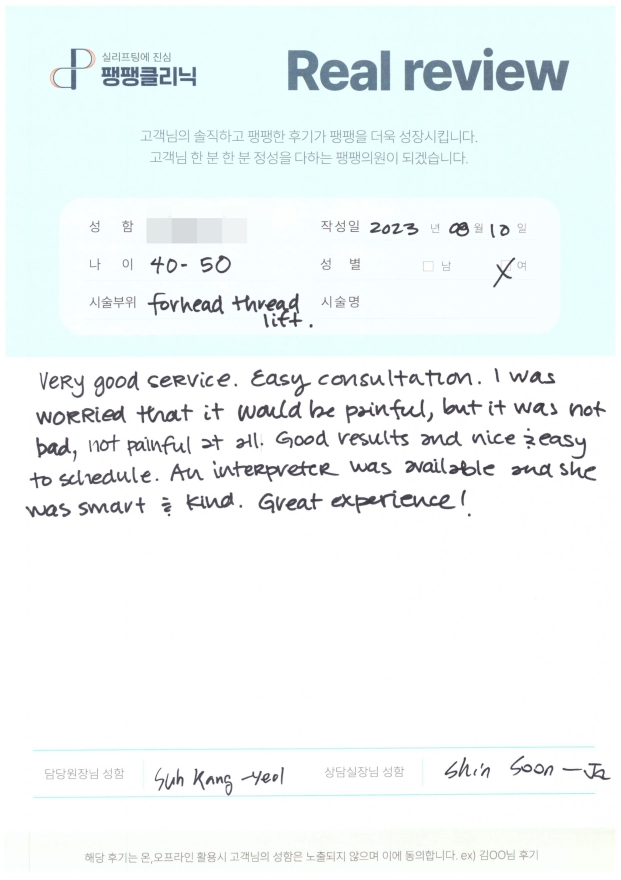 실리프팅에 진심
팽팽클리닉
Real review
고객님의 솔직하고 팽팽한 후기가 팽팽을 더욱 성장시킵니다.
고객님 한 분 한 분 정성을 다하는 팽팽의원이 되겠습니다.
성 함 작성일 2023 년 08 월 10 일
나 이 40-50 성 별 남 X 여
시술부위 forhead thread lift. 시술명
Very good service. Easy consultation. I was
worried that it would be painful, but it was not
bad, not painful at all. Good results and nice & easy
to schedule. An interpreter was available and she
was smart & kind. Great experience!
담당원장님 성함 Suh Kang-Yeol 상담실장님 성함 Shin Soon-Ja
해당 후기는 온,오프라인 활용시 고객님의 성함은 노출되지 않으며 이에 동의합니다. ex) 김OO님 후기